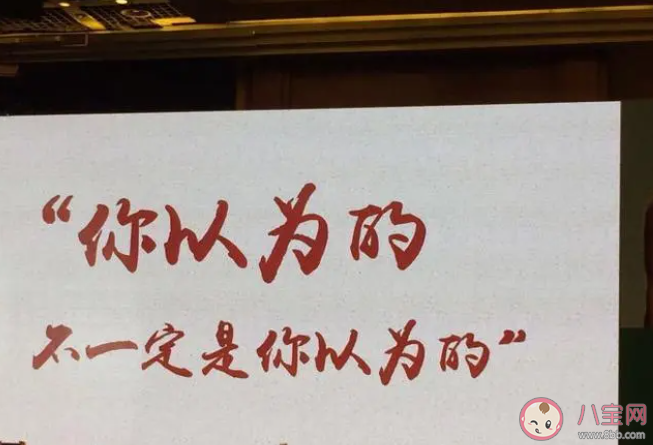 “你以为的
不一定是你以为的”
八宝网
www.8bb.com